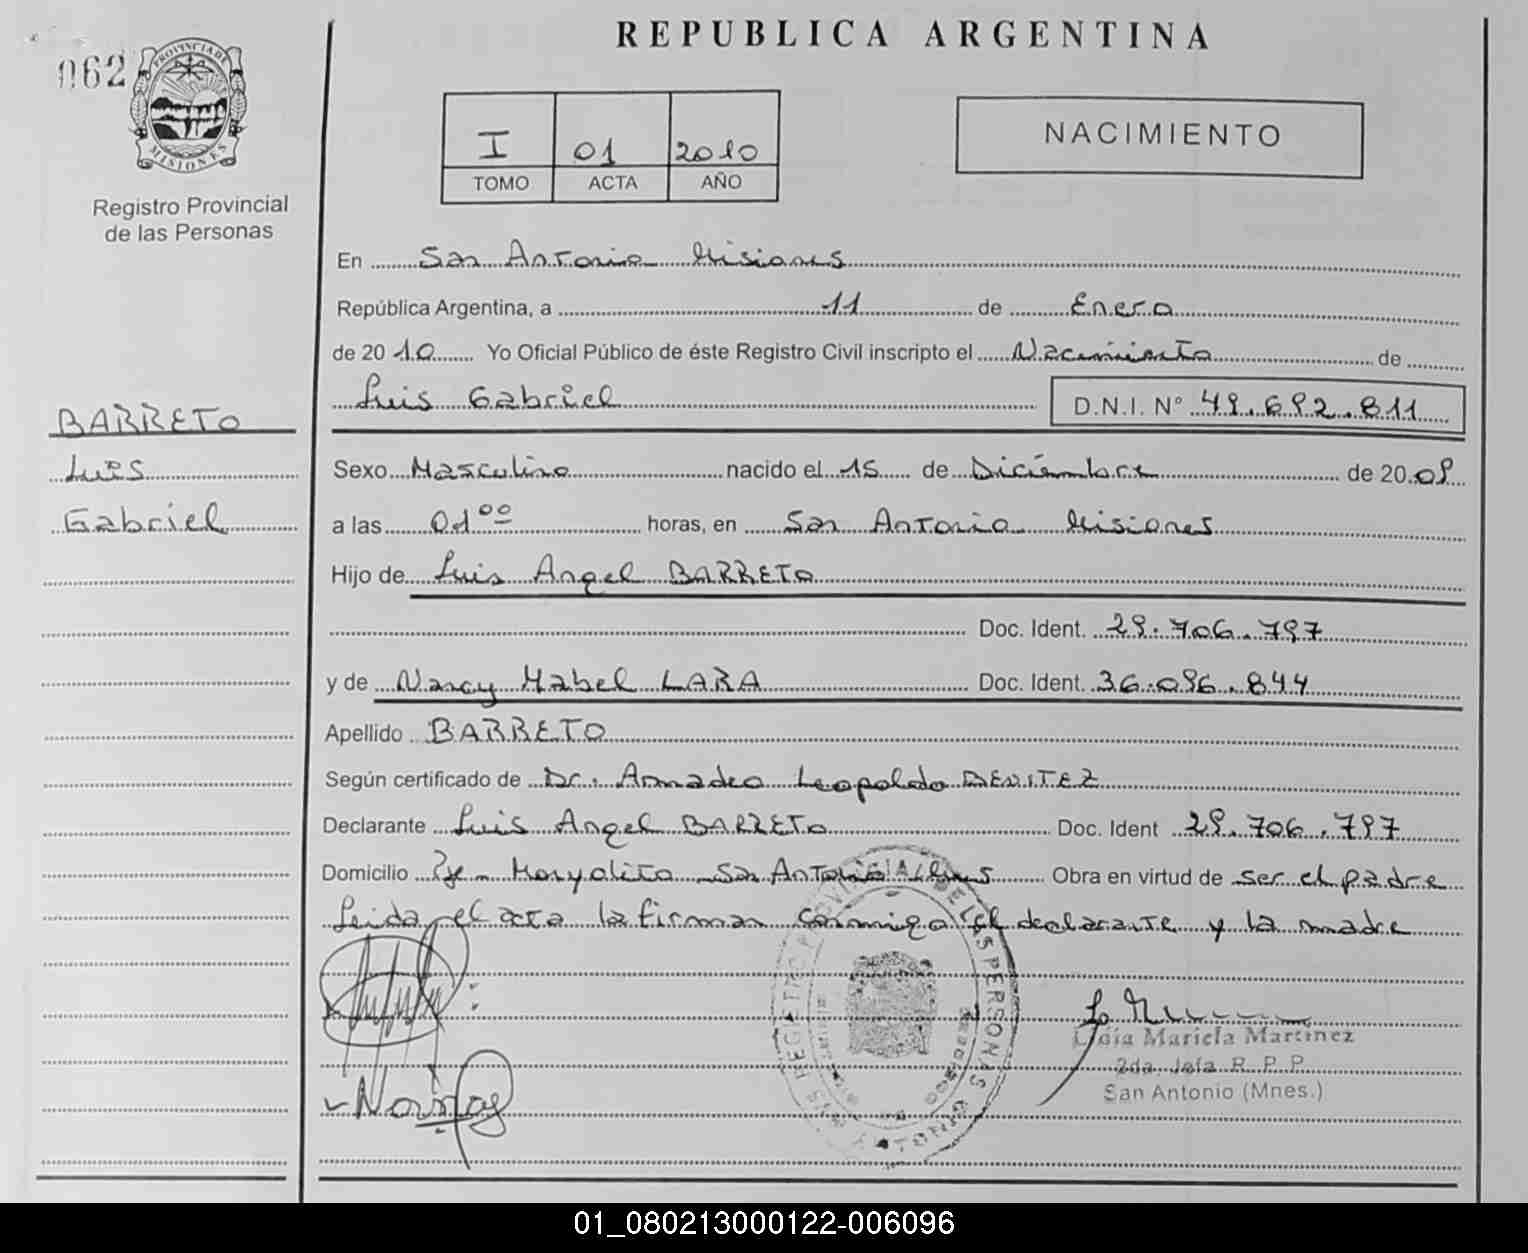 REPUBLICA ARGENTINA
062
PROVINCIA DE
MISIONES
Registro Provincial
de las Personas
I 01 2010
TOMO ACTA AÑO
NACIMIENTO
En San Antonio Misiones
República Argentina, a 11 de Enero
de 2010 Yo Oficial Público de éste Registro Civil inscripto el Nacimiento de
Luis Gabriel D.N.I. N° 49.692.811
BARRETO
Luis
Gabriel
Sexo Masculino nacido el 15 de Diciembre de 2009
a las 01ºº horas, en San Antonio Misiones
Hijo de Luis Angel BARRETO
Doc. Ident. 29.706.797
y de Nancy Mabel LARA Doc. Ident. 36.096.844
Apellido BARRETO
Según certificado de Dr. Amadeo Leopoldo BENITEZ
Declarante Luis Angel BARRETO Doc. Ident 29.706.797
Domicilio San Antonio Mnes Obra en virtud de ser el padre
Leida el acta la firman conmigo el declarante y la madre
REGISTRO PROVINCIAL DE LAS PERSONAS
Mariela Martinez
2da. Jefa R. P. P.
San Antonio (Mnes.)
01_080213000122-006096